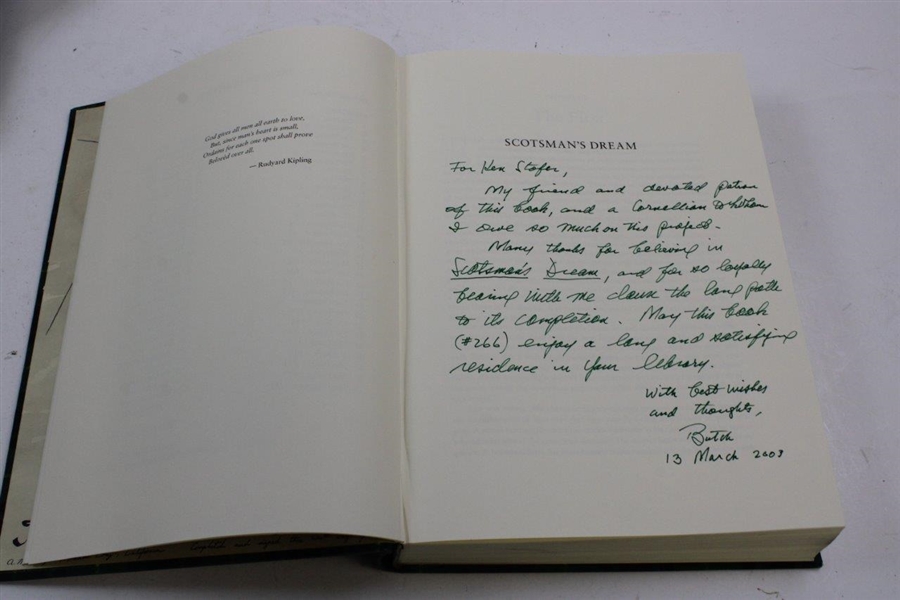 God gives all men all earth to love,
But, since man's heart is small,
Ordains for each one spot shall prove
Belovèd over all.
— Rudyard Kipling
SCOTSMAN'S DREAM
For Ken Stofer,
My friend and devoted patron
of this book, and a Cornellian to whom
I owe so much on this project.
Many thanks for believing in
Scotsman's Dream, and for so loyally
bearing with me down the long path
to its completion. May this book
(#266) enjoy a long and satisfying
residence in your library.
With best wishes
and thoughts,
Butch
13 March 2003